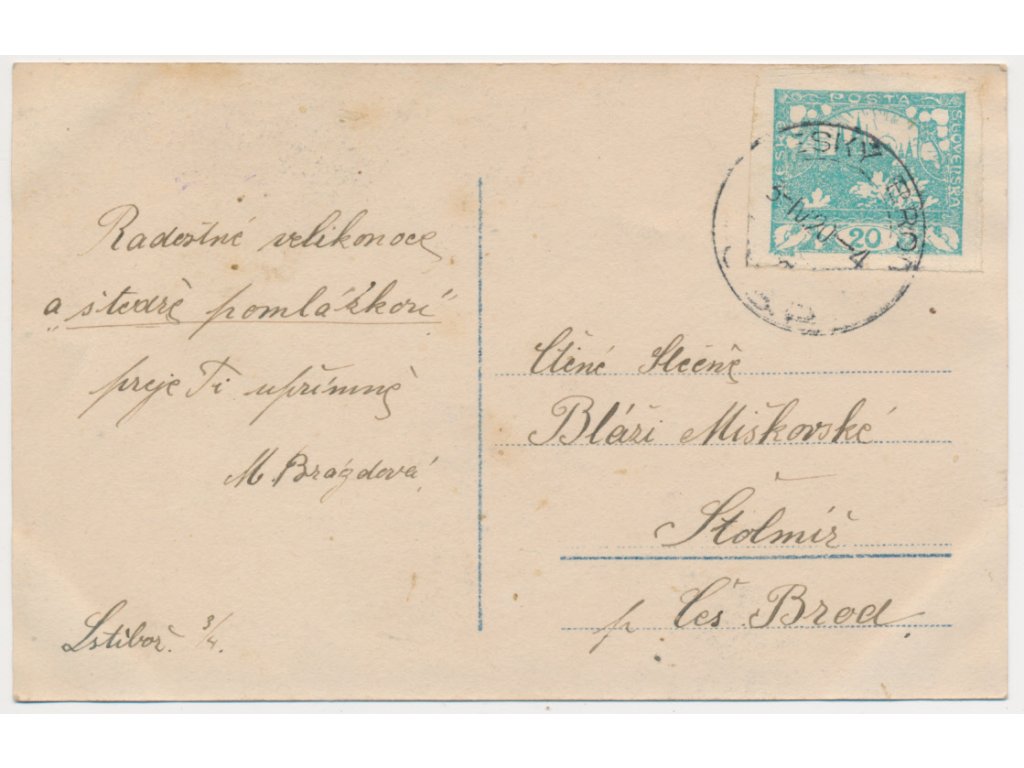 Radostné velikonoce
a „štědré pomlázkou"
přeje Ti upřímně
M. Brázdová
Lstiboř. 3/4.
POŠTA
ČESKO
SLOVENSKÁ
20
ČESKÝ BROD
3-IV.20-4
Ctěné Slečně
Bláži Miškovské
Štolmíř
p Čes. Brod.